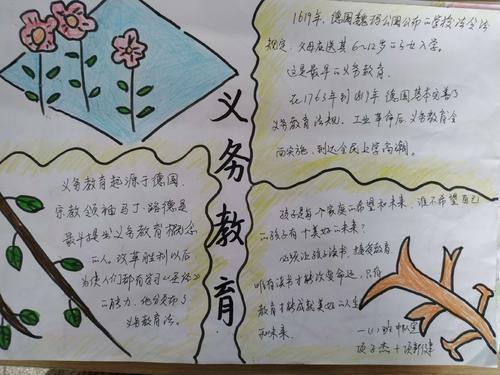 义务教育
1619年，德国魏玛公国公布的学校法令法
规定，父母应送其6~12岁的子女入学。
这是最早的义务教育。
在1763年到1819年德国基本完善了
义务教育法规。工业革命后义务教育全
面实施，到达全民上学高潮。
义务教育起源于德国。
宗教领袖马丁·路德是
最早提出义务教育概念
的人。改革胜利以后
为使人们都有学习《圣经》
的能力，他分布了
义务教育法。
孩子是每个家庭的希望和未来，谁不希望自己
的孩子有个美好的未来？
必须让孩子读书，接受教育
唯有读书才能改变命运，只有
教育才能成就美好的人生
和未来。
一（1）班
项子杰